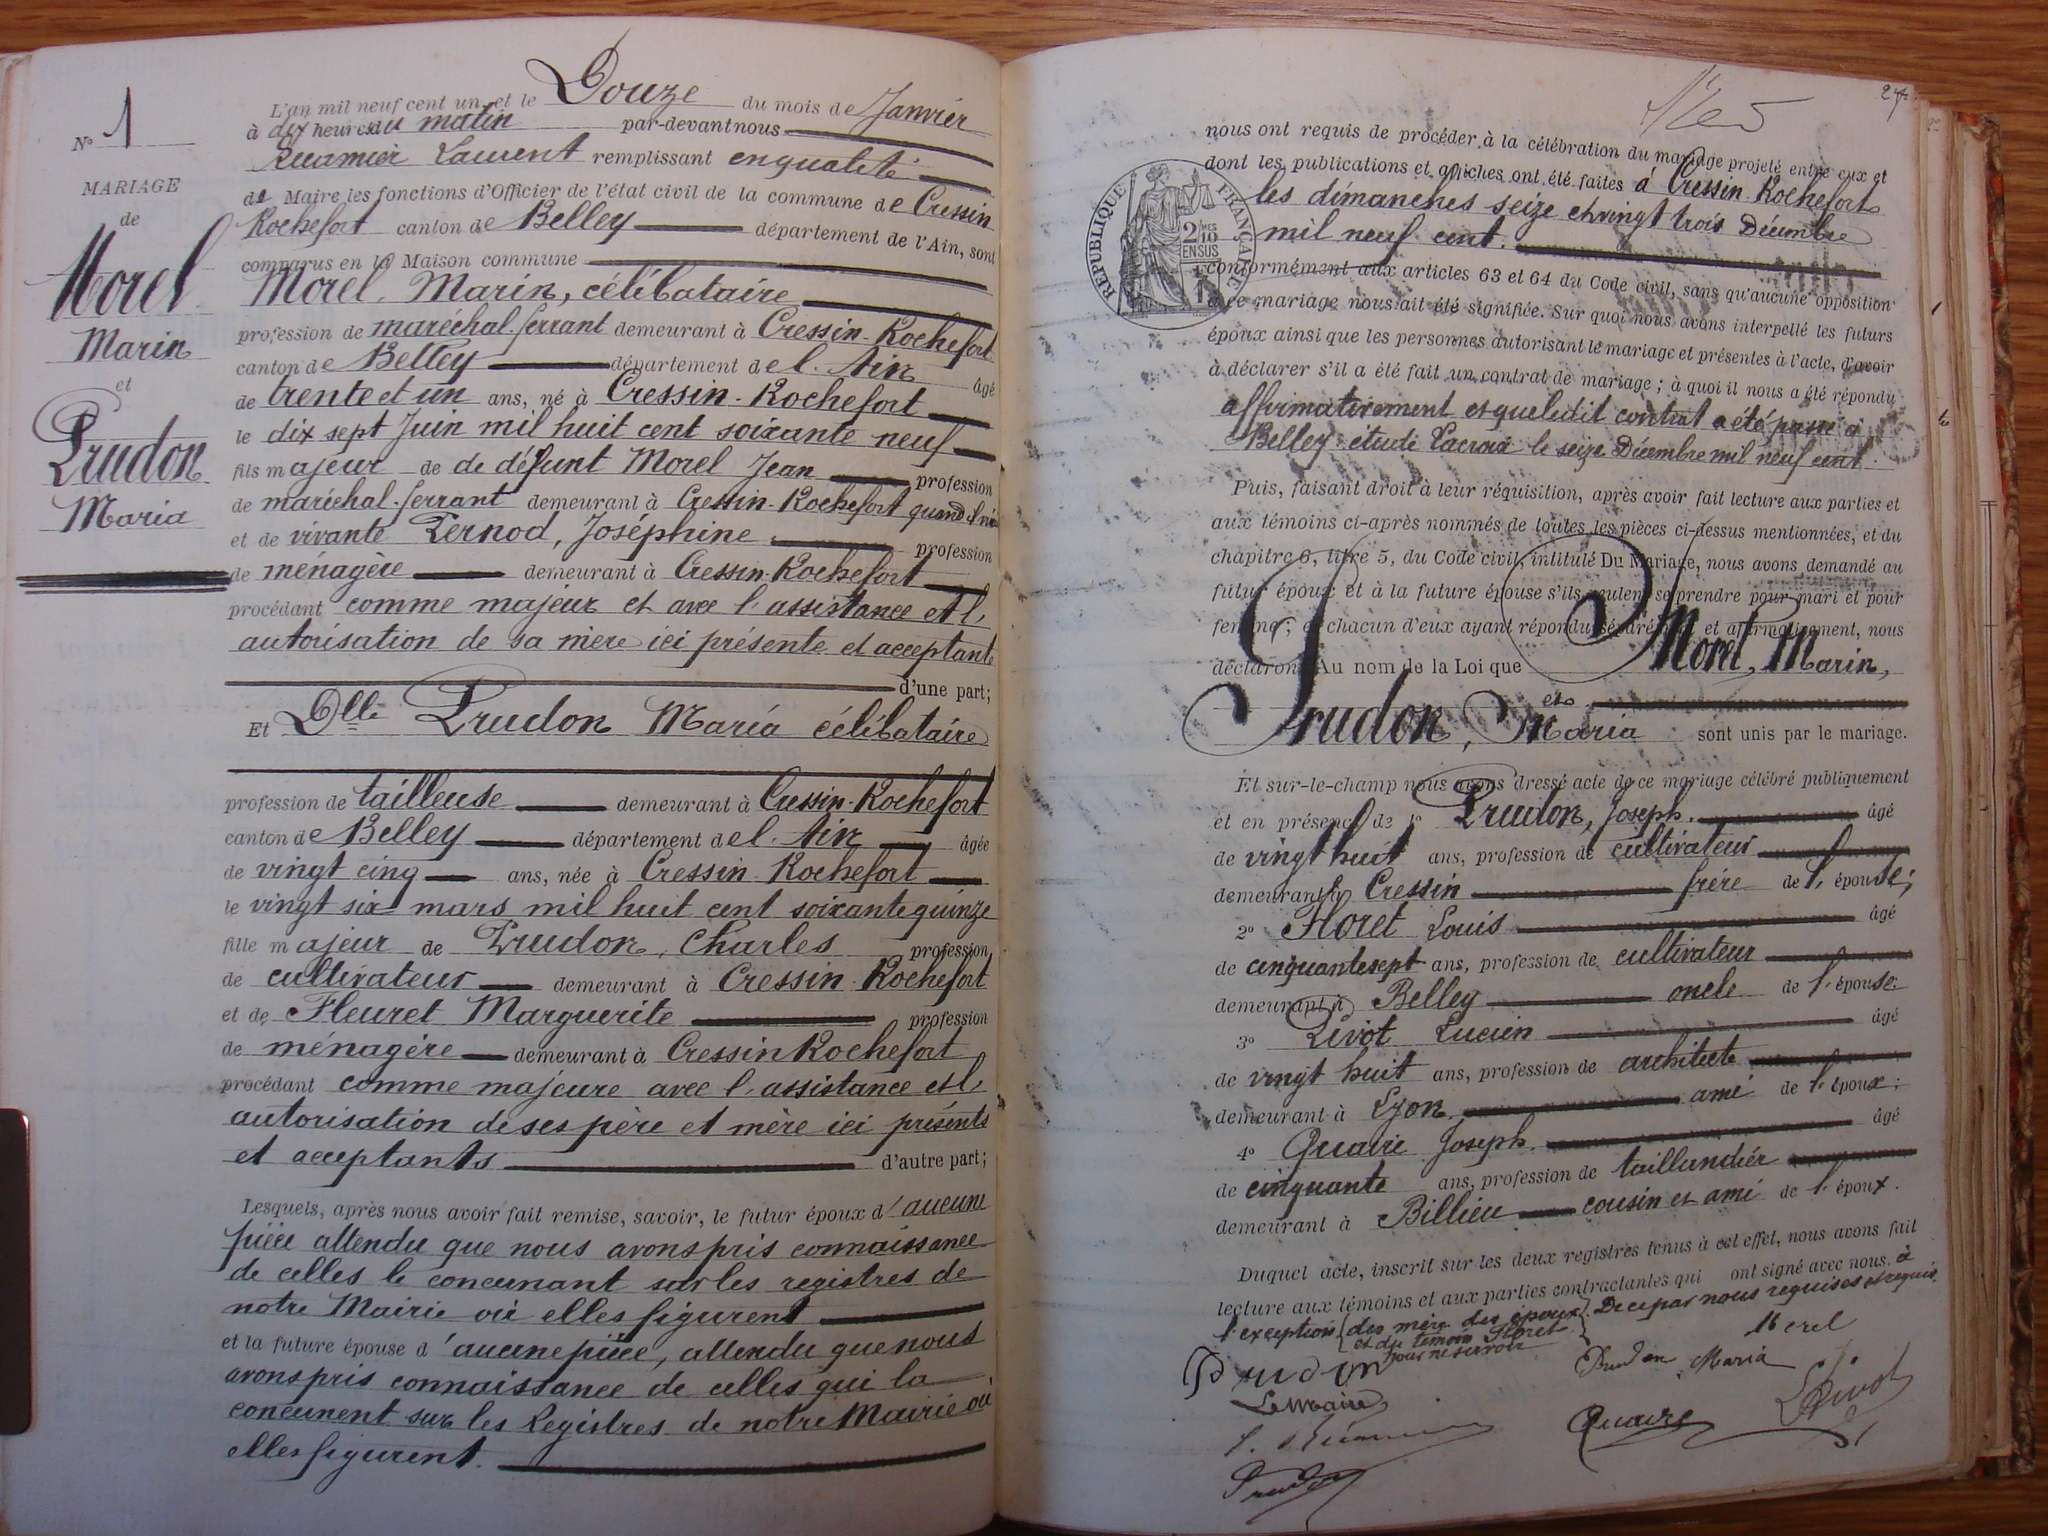 L'an mil neuf cent un et le Douze du mois de Janvier
à dix heures du matin par-devant nous
Récamier Laurent remplissant en qualité
de Maire les fonctions d'Officier de l'état civil de la commune de Cressin
Rochefort canton de Belley département de l'Ain, sont
comparus en la Maison commune
Morel, Marin, célibataire
profession de maréchal-ferrant demeurant à Cressin-Rochefort
canton de Belley département de l'Ain âgé
de trente et un ans, né à Cressin-Rochefort
le dix sept Juin mil huit cent soixante neuf
fils majeur de de défunt Morel Jean profession
de maréchal-ferrant demeurant à Cressin-Rochefort quand il vi
et de vivante Pernod, Joséphine profession
de ménagère demeurant à Cressin-Rochefort
procédant comme majeur et avec l'assistance et l'
autorisation de sa mère ici présente et acceptante
d'une part;
Et Dlle Prudon Maria célibataire
profession de tailleuse demeurant à Cressin-Rochefort
canton de Belley département de l'Ain âgée
de vingt cinq ans, née à Cressin-Rochefort
le vingt six mars mil huit cent soixante quinze
fille majeur de Prudon, Charles profession
de cultivateur demeurant à Cressin-Rochefort
et de Fleuret Marguerite profession
de ménagère demeurant à Cressin Rochefort
procédant comme majeure avec l'assistance et l'
autorisation de ses père et mère ici présents
et acceptants d'autre part;
Lesquels, après nous avoir fait remise, savoir, le futur époux d'aucune
pièce attendu que nous avons pris connaissance
de celles le concernant sur les registres de
notre Mairie où elles figurent
et la future épouse d'aucune pièce, attendu que nous
avons pris connaissance de celles qui la
concernent sur les Registres de notre Mairie où
elles figurent.
No 1
MARIAGE
de
Morel
Marin
et
Prudon
Maria
27
nous ont requis de procéder à la célébration du mariage projeté entre eux et
dont les publications et affiches ont été faites à Cressin-Rochefort
les dimanches seize et vingt trois Décembre
mil neuf cent.
RÉPUBLIQUE FRANÇAISE
2 MES
10
EN SUS
conformément aux articles 63 et 64 du Code civil, sans qu'aucune opposition
à ce mariage nous ait été signifiée. Sur quoi nous avons interpellé les futurs
époux ainsi que les personnes autorisant le mariage et présentes à l'acte, d'avoir
à déclarer s'il a été fait un contrat de mariage; à quoi il nous a été répondu
affirmativement et que ledit contrat a été passé à
Belley étude Lacroix le seize Décembre mil neuf cent.
Puis, faisant droit à leur réquisition, après avoir fait lecture aux parties et
aux témoins ci-après nommés de toutes les pièces ci-dessus mentionnées, et du
chapitre 6, titre 5, du Code civil, intitulé Du Mariage, nous avons demandé au
futur époux et à la future épouse s'ils veulent se prendre pour mari et pour
femme; et chacun d'eux ayant répondu séparément et affirmativement, nous
déclarons Au nom de la Loi que Morel, Marin,
et
Prudon, Maria sont unis par le mariage.
Et sur-le-champ nous avons dressé acte de ce mariage célébré publiquement
et en présence de 1o Prudon, Joseph. âgé
de vingt huit ans, profession de cultivateur
demeurant à Cressin frère de l'épouse;
2o Floret Louis âgé
de cinquante sept ans, profession de cultivateur
demeurant à Belley oncle de l'épouse:
3o Pivot Lucien âgé
de vingt huit ans, profession de architecte
demeurant à Lyon. ami de l'époux;
4o Quaire Joseph. âgé
de cinquante ans, profession de taillandier
demeurant à Billieu cousin et ami de l'époux.
Duquel acte, inscrit sur les deux registres tenus à cet effet, nous avons fait
lecture aux témoins et aux parties contractantes qui ont signé avec nous à
l'exception des mère des époux et du témoin Floret pour ne savoir De ce par nous requises et requis
Morel
Prudon
Prudon Maria
Le Maire
L. Récamier
Quaire
L Pivot
Prudon